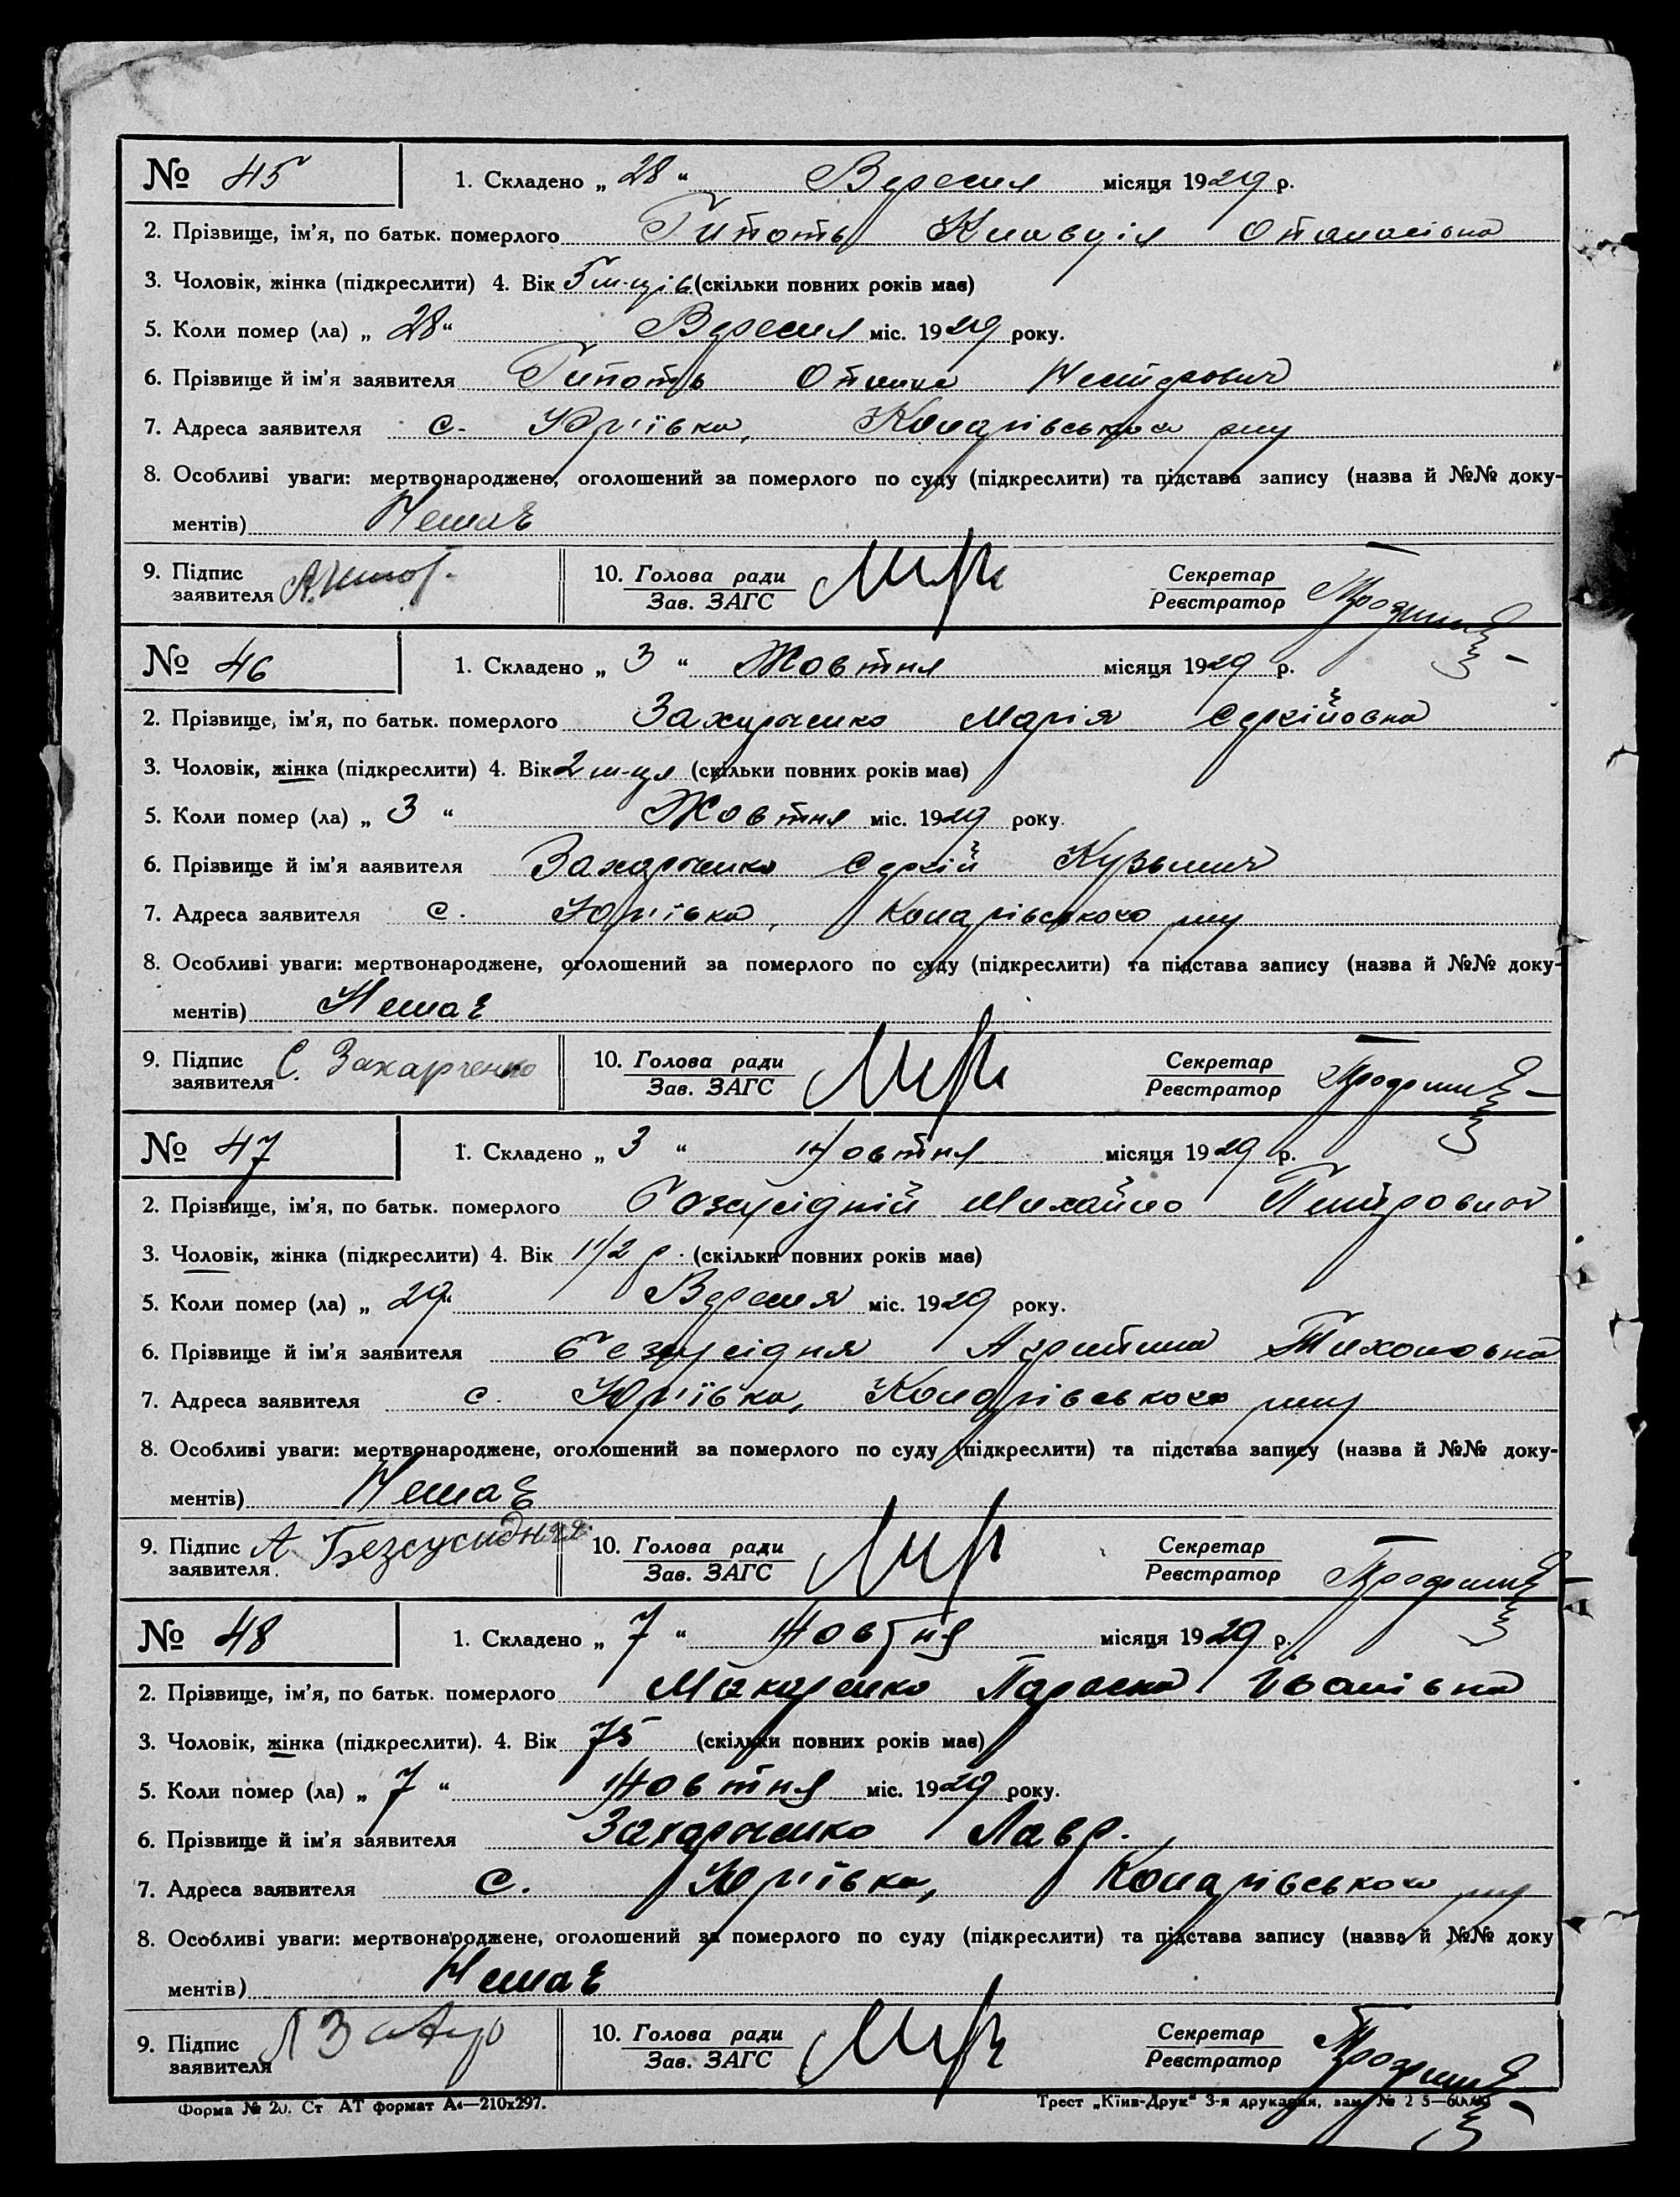 № 45 1. Складено „ 28 “ Вересня місяця 1929 р.
2. Прізвище, ім'я, по батьк. померлого Клавдія Опанасівна
3. Чоловік, жінка (підкреслити) 4. Вік 5 м-ців (скільки повних років має)
5. Коли помер (ла) „ 28 “ Вересня міс. 1929 року.
6. Прізвище й ім'я заявителя
7. Адреса заявителя с. Юр'ївка, рну
8. Особливі уваги: мертвонароджене, оголошений за померлого по суду (підкреслити) та підстава запису (назва й №№ доку-
ментів) Немає
9. Підпис заявителя 10. Голова ради Зав. ЗАГС Секретар Реєстратор
№ 46 1. Складено „ 3 “ Жовтня місяця 1929 р.
2. Прізвище, ім'я, по батьк. померлого Захарченко Марія Сергійовна
3. Чоловік, жінка (підкреслити) 4. Вік 2 м-ця (скільки повних років має)
5. Коли помер (ла) „ 3 “ Жовтня міс. 1929 року.
6. Прізвище й ім'я заявителя Захарченко Сергій Кузьмич
7. Адреса заявителя с. Юр'ївка, рну
8. Особливі уваги: мертвонароджене, оголошений за померлого по суду (підкреслити) та підстава запису (назва й №№ доку-
ментів) Немає
9. Підпис заявителя С. Захарченко 10. Голова ради Зав. ЗАГС Секретар Реєстратор
№ 47 1. Складено „ 3 “ Жовтня місяця 1929 р.
2. Прізвище, ім'я, по батьк. померлого Михайло Петрович
3. Чоловік, жінка (підкреслити) 4. Вік 1 1/2 р. (скільки повних років має)
5. Коли помер (ла) „ 29 “ Вересня міс. 1929 року.
6. Прізвище й ім'я заявителя Безсусідня Тихоновна
7. Адреса заявителя с. Юр'ївка, рну
8. Особливі уваги: мертвонароджене, оголошений за померлого по суду (підкреслити) та підстава запису (назва й №№ доку-
ментів) Немає
9. Підпис заявителя А Безсусидняя 10. Голова ради Зав. ЗАГС Секретар Реєстратор
№ 48 1. Складено „ 7 “ Жовтня місяця 1929 р.
2. Прізвище, ім'я, по батьк. померлого Макаренко Параска Іванівна
3. Чоловік, жінка (підкреслити). 4. Вік 75 (скільки повних років має)
5. Коли помер (ла) „ 7 “ Жовтня міс. 1929 року.
6. Прізвище й ім'я заявителя Захарченко Лавр.
7. Адреса заявителя с. Юр'ївка, рну
8. Особливі уваги: мертвонароджене, оголошений за померлого по суду (підкреслити) та підстава запису (назва й №№ доку
ментів) Немає
9. Підпис заявителя 10. Голова ради Зав. ЗАГС Секретар Реєстратор
Форма № 20. Ст АТ формат А4—210х297. Трест „Київ-Друк“ 3-я друкарня, зам. №